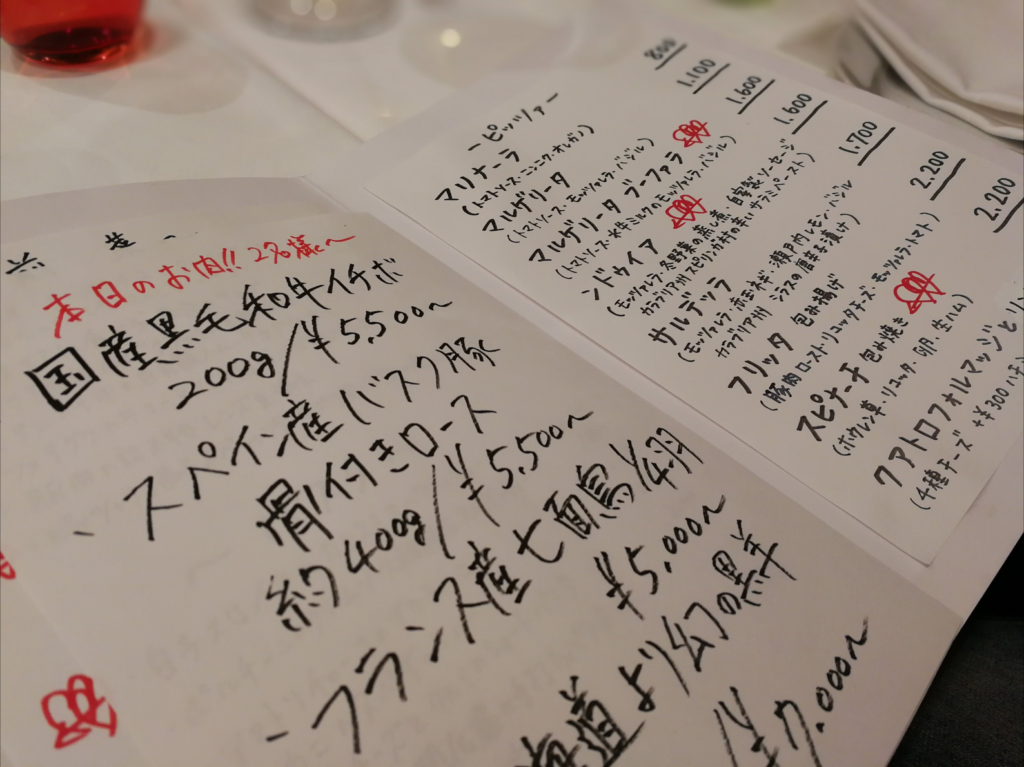 本日のお肉!! 2名様〜
国産黒毛和牛イチボ
200g/¥5,500〜
- スペイン産バスク豚
骨付きロース
約400g/¥5,500〜
- フランス産七面鳥 1/4羽
¥5,000〜
海道より幻の黒羊
¥7,000〜
ーピッツァー
マリナーラ 800
(トマトソース・ニンニク・オレガノ)
マルゲリータ 1.100
(トマトソース・モッツァレラ・バジル)
マルゲリータ ブーファラ 1.600
(トマトソース・水牛ミルクのモッツァレラ・バジル)
ンドゥイア 1.600
(モッツァレラ・冬野菜の蒸し煮・自家製ソーセージ
カラブリア州スピリンガ村の辛いサラミペースト)
サルデッラ 1.700
(モッツァレラ・赤玉ネギ・瀬戸内レモン・バジル
カラブリア州 シラスの唐辛子漬け)
フリッタ 包み揚げ 2.200
(豚肉ロースト・リコッタチーズ・モッツァレラ・トマト)
スピナーチ 包み焼き 2.200
(ホウレン草・リコッタ、卵、生ハム)
クアトロフォルマッジ
(4種チーズ +¥300ハチ